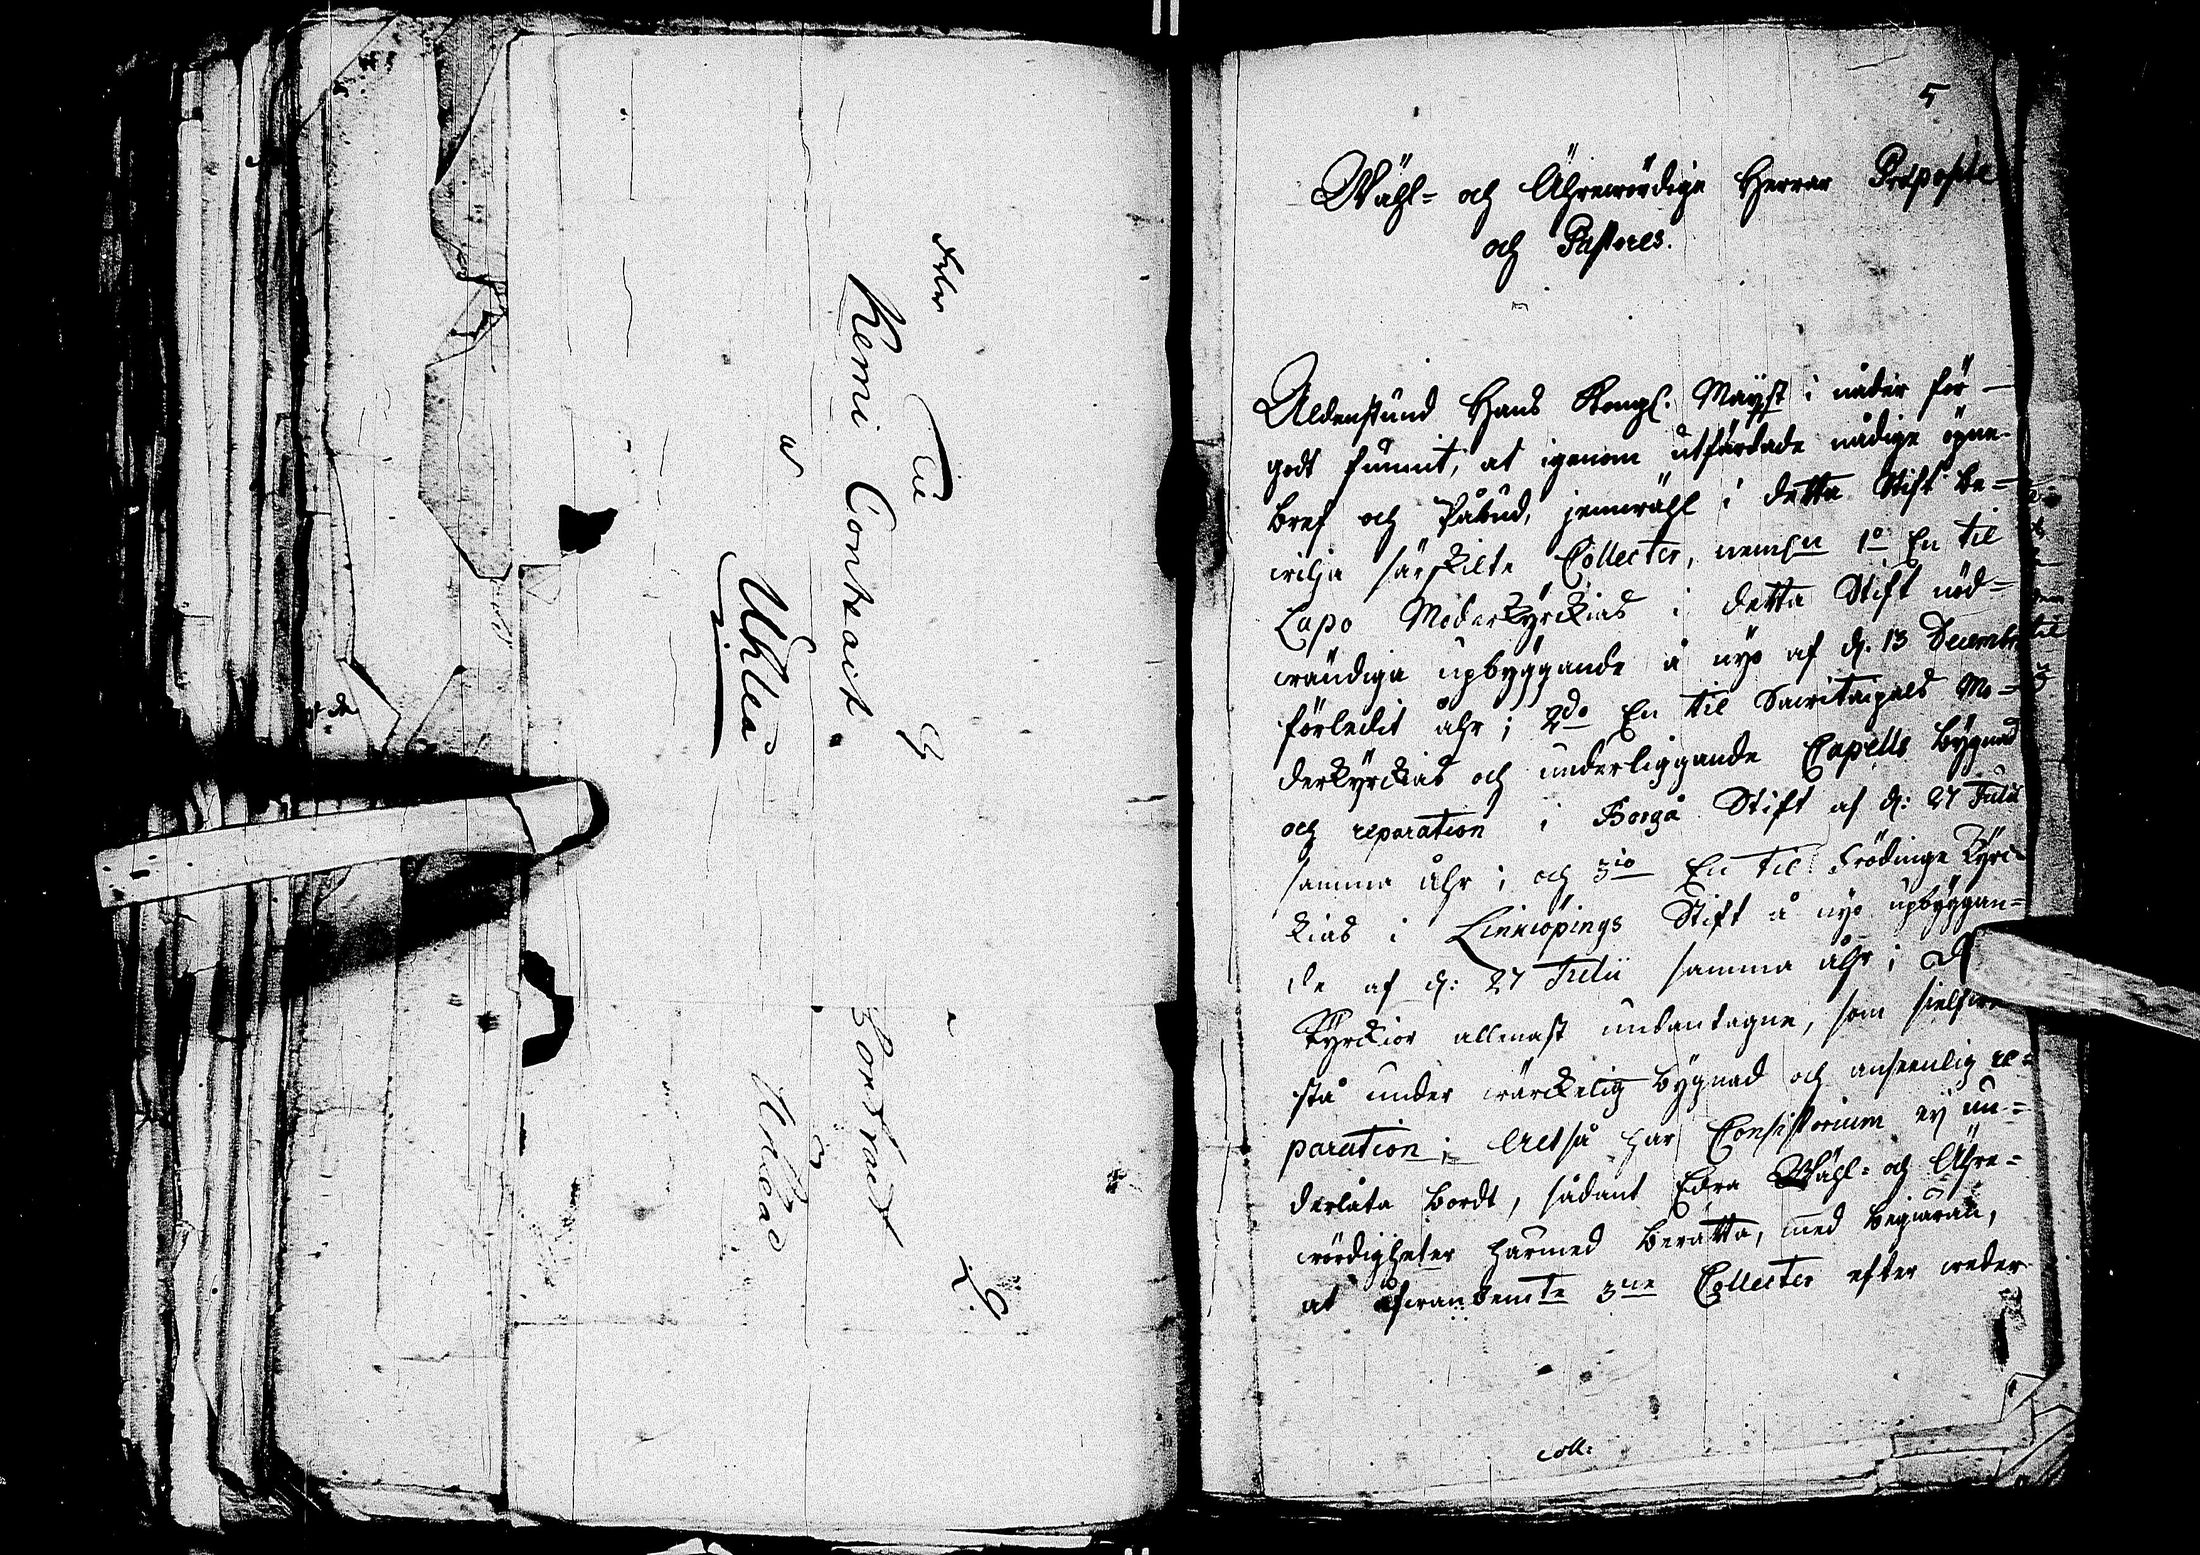 Kemi Contract
Uhlea
5
Wähl- och Ährewördige Herrar Præpositi
och Pastores.
Aldenstund Hans Kongl. Mayst i nåder för-
godt funnit, at igenom utfärdade nådige öpne
bref och Påbud, jemwähl i detta Stift be-
wilja särskilte Collecter, neml:n 1o En til
Lapo Moderkyrckias i detta Stift nöd-
wändiga upbyggande å nyo af d. 13 Decembr
förledit åhr; 2do En til Sawitaipals Mo-
derkyrckias och underliggande Capells bygnad
och reparation i Borgå Stift af d: 27 Julii
samma åhr; och 3io En til Frödinge Kyrc-
kias i Linkiöpings Stift å nyo upbyggan-
de af d: 27 Julii samma åhr; de
Kyrckior allenast undantagne, som sielfwe
stå under wärckelig bygnad och ansenlig re-
paration; Altså har Consistorium ey un-
derlåta bordt, sådant Edra Wähl- och Ähre-
wördigheter härmed berätta, med begiäran,
at ofwanbemte 3ne Collecter efter weder-
coll: